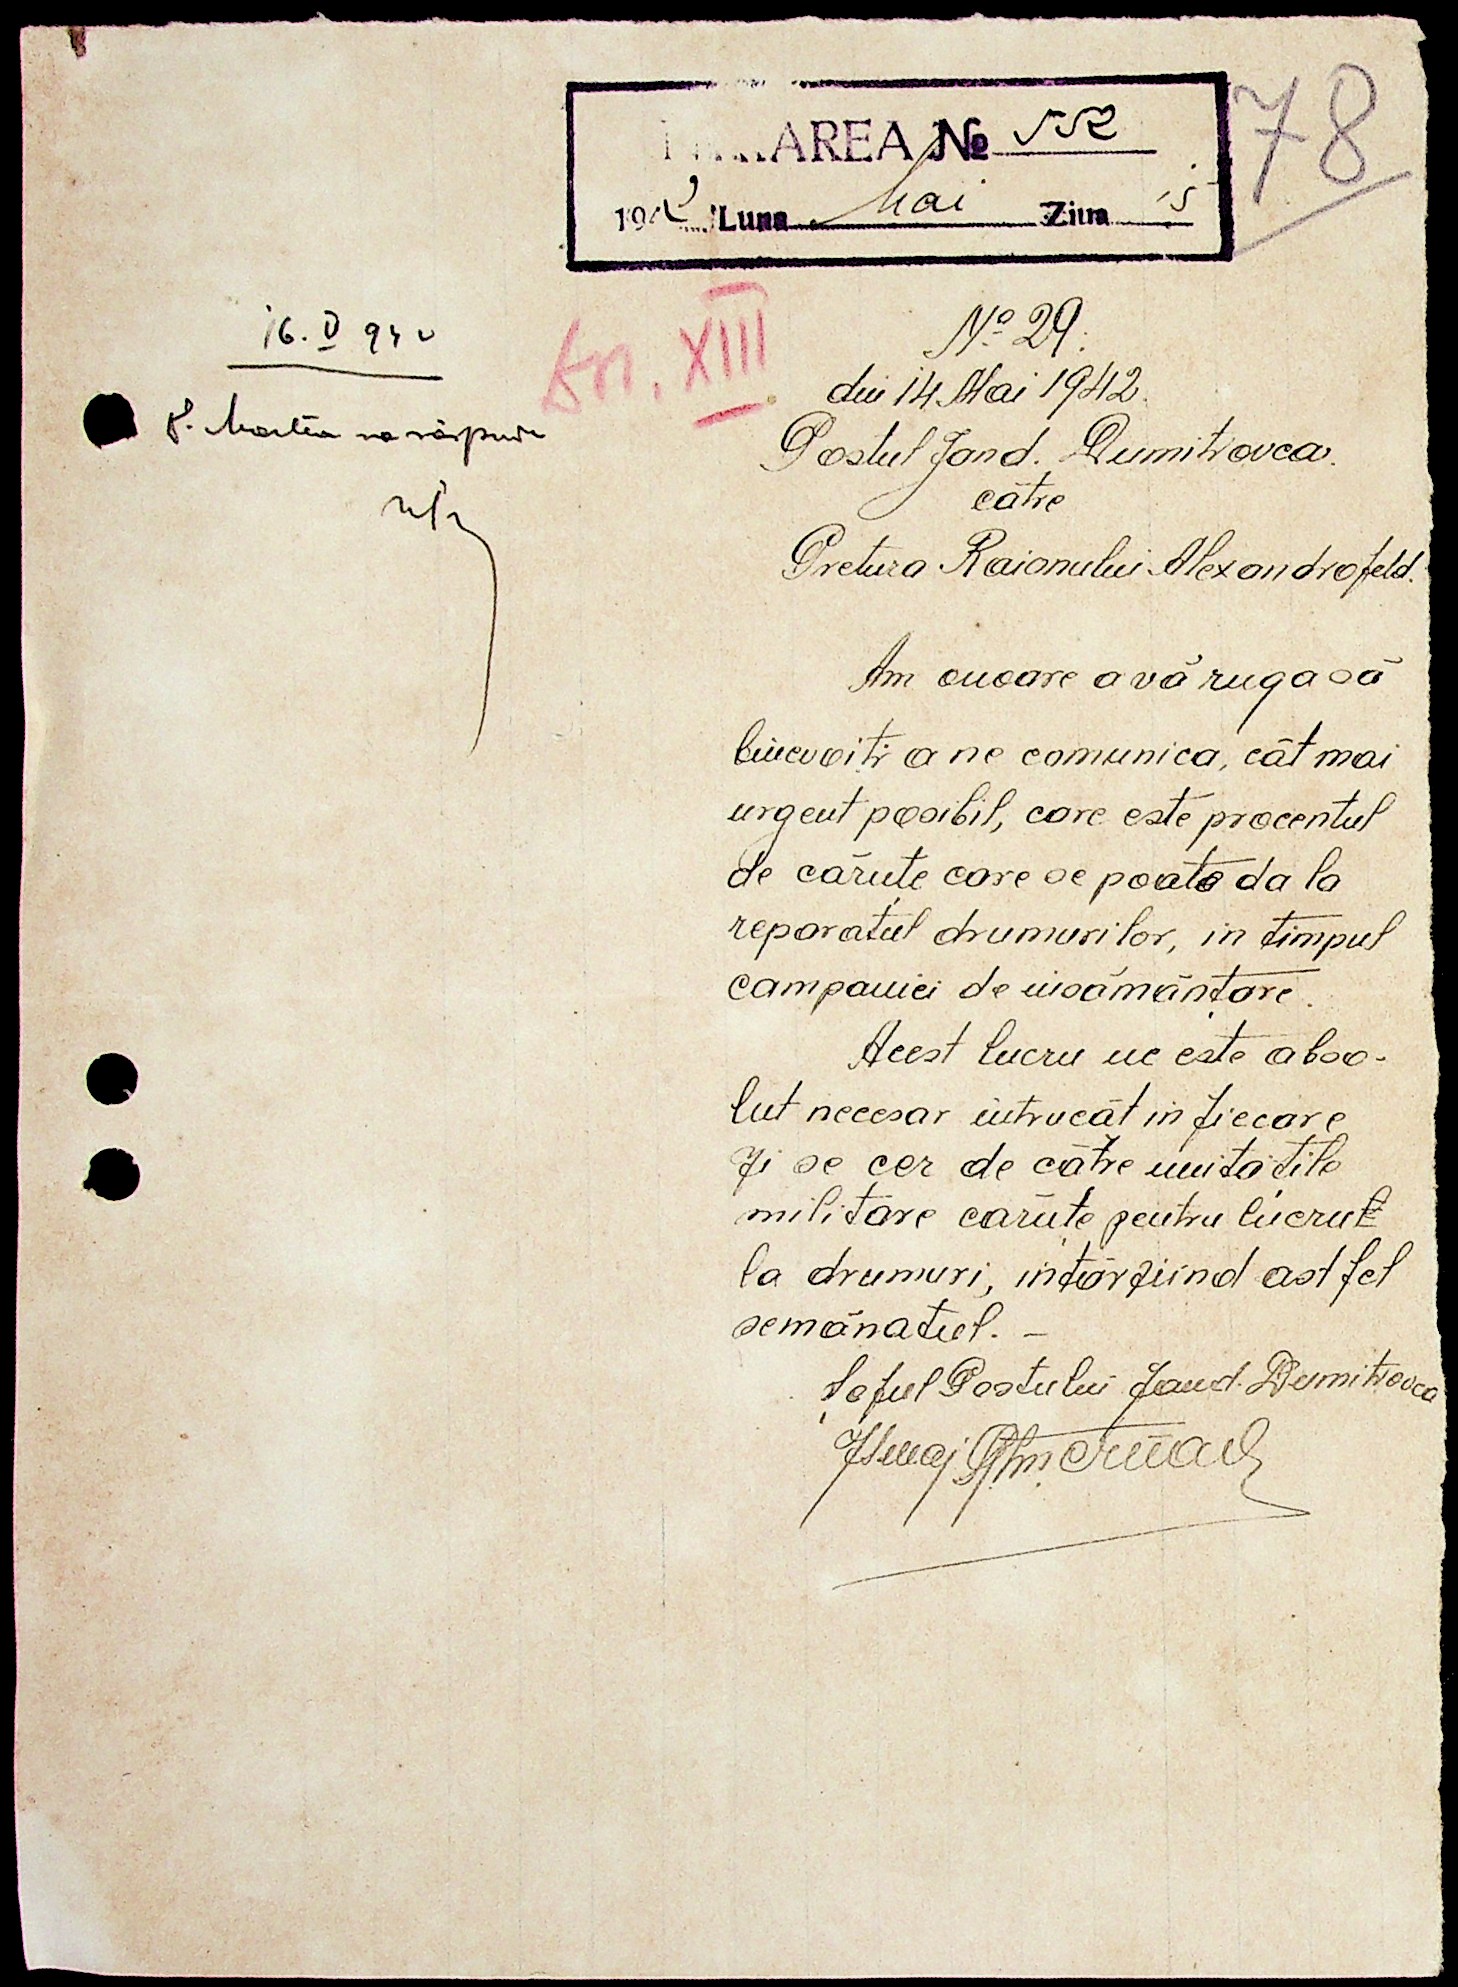 INTRAREA № 552
1942 Luna Mai Ziua 15
78
16. V 942
XIII
№ 29.
din 14 Mai 1942.
Postul Jand. Dumitrovca.
către
Pretura Raionului Alexandrofeld.
Am onoare a vă ruga să
binevoiți a ne comunica, cât mai
urgent posibil, care este procentul
de căruțe care se poate da la
reparatul drumurilor, in timpul
campaniei de insămânțare.
Acest lucru ne este abso-
lut necesar intrucât in fiecare
zi se cer de către unitățile
militare caruțe pentru lucrul
la drumuri, intârziind astfel
semănatul. —
Șeful Postului Jand. Dumitrovca